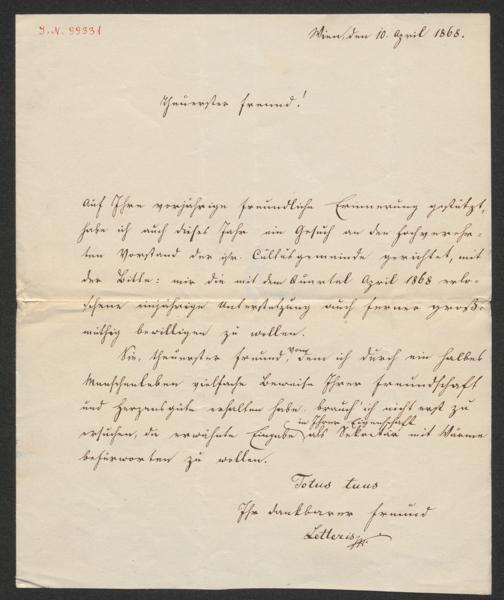 I. N. 99331
Wien, den 10. April 1868.
Theuerster Freund!
Auf Ihre vorjährige freundliche Erinnerung gestützt,
habe ich auch dieses Jahr ein Gesuch an den hochverehr-
ten Vorstand der isr. Cultusgemeinde gerichtet, mit
der Bitte: mir die mit dem Quartal April 1868 erlo-
schene einjährige Unterstützung auch ferner groß-
müthig bewilligen zu wollen.
Sie, theuerster Freund, von dem ich durch ein halbes
Menschenleben vielfache Beweise Ihrer Freundschaft
und Herzensgüte erhalten habe, brauch' ich nicht erst zu
ersuchen, die erwähnte Eingabe in Ihrer Eigenschaft als Sekretär mit Wärme
befürworten zu wollen.
Totus tuus
Ihr dankbarer Freund
Letteris